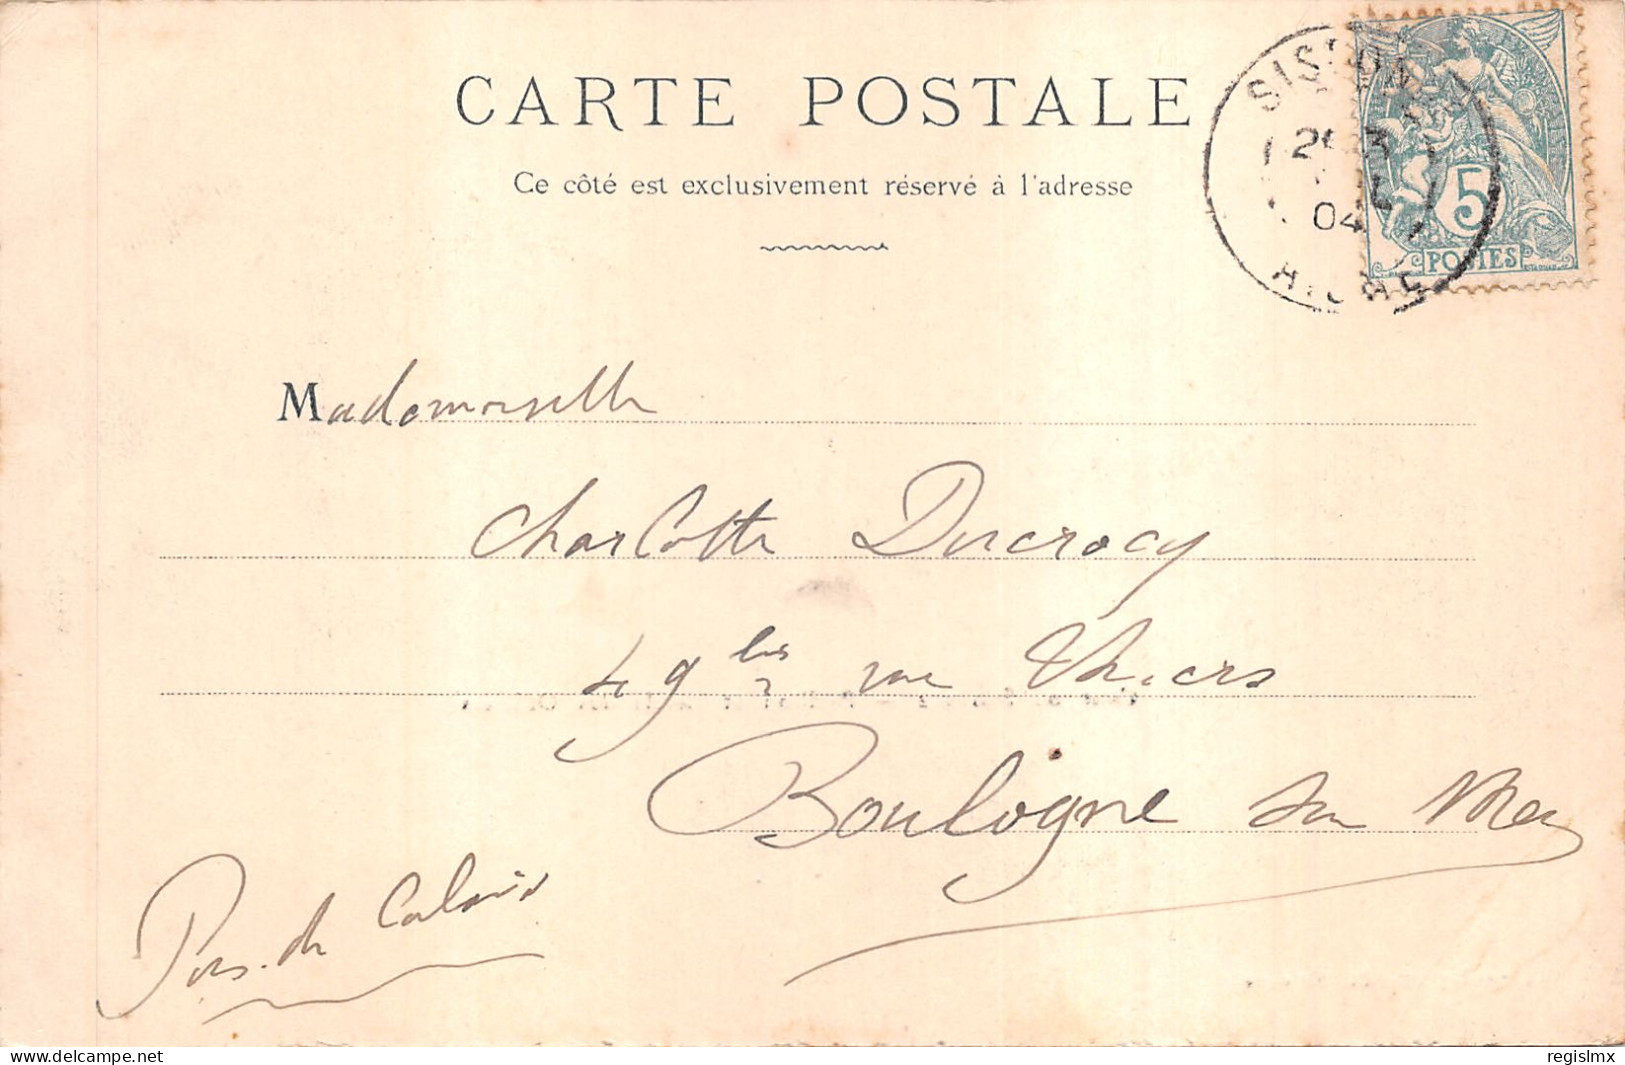 CARTE POSTALE
Ce côté est exclusivement réservé à l'adresse
04
5
POSTES
Mademoiselle
Charlotte Ducrocq
49 bis rue Thiers
Boulogne sur Mer
Pas-de Calais
www.delcampe.net
regislmx